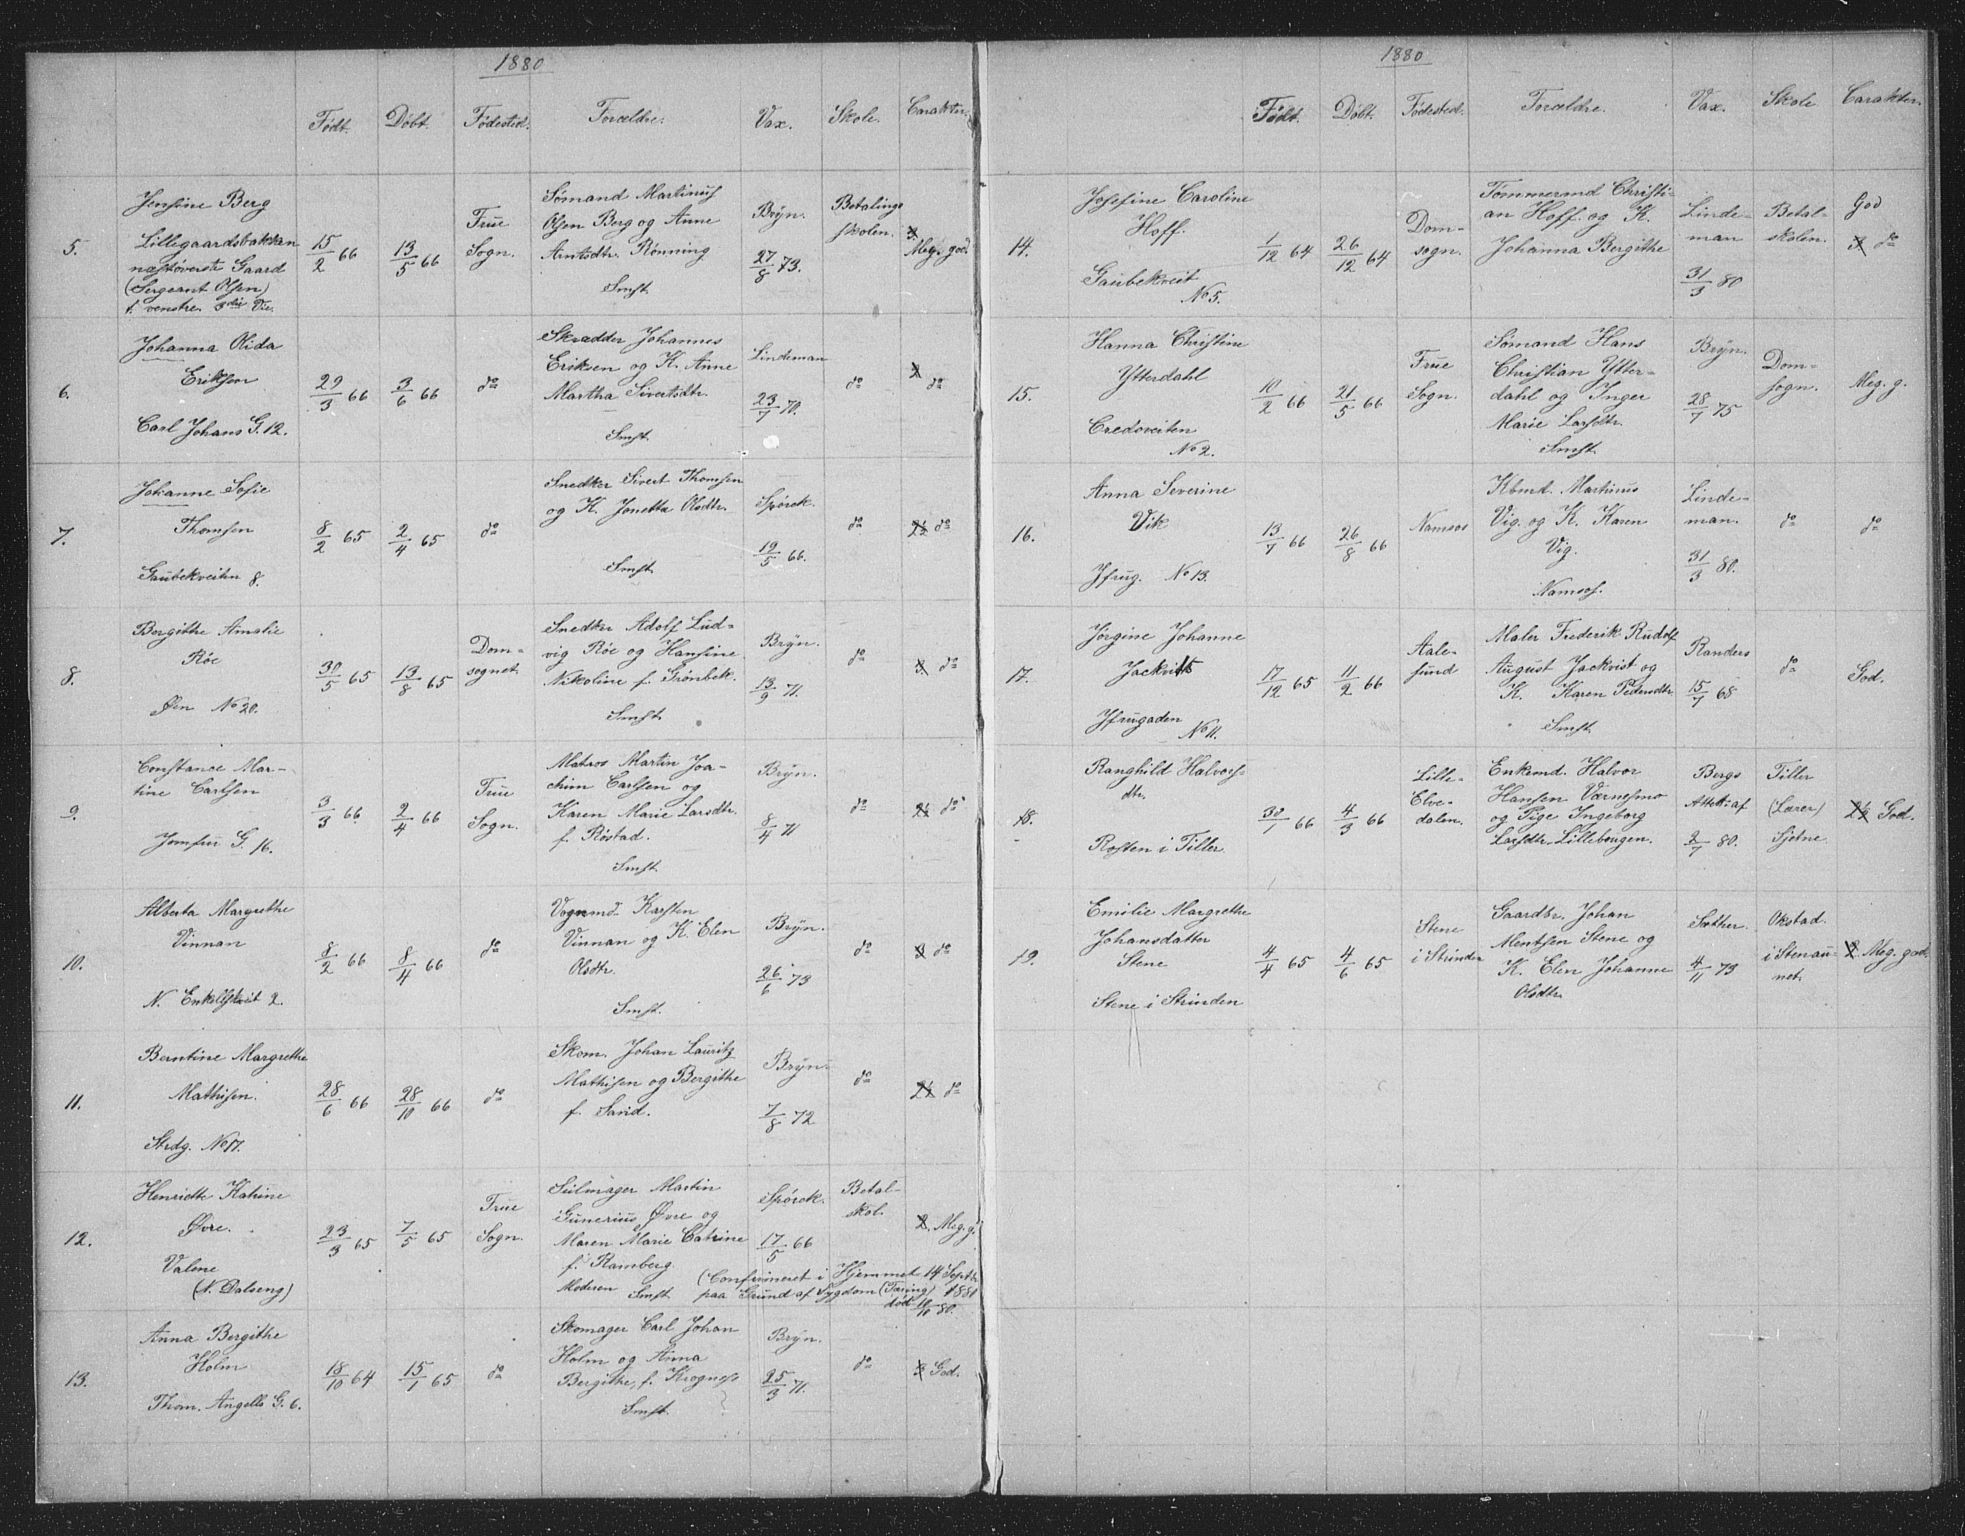 1880
Født. Døbt. Fødested. Forældre. Vax. Skole. Carakter.
5.
Jensine Berg
Lillegaardsbakken
næstøverste Gaard
(Sergeant Olsen)
t. venstre 3die Vie.
15/2 66
13/5 66
Frue
Sogn.
Sømand Martinus
Olsen Berg og Anne
Arntsdtr. Rønning
Smst.
Brÿn.
27/8 73.
Betalings
skolen.
Meg. god.
6.
Johanna Olida
Eriksen
Carl Johans G. 12.
29/3 66
3/6 66
do
Skrædder Johannes
Eriksen og K. Anne
Martha Sivertsdtr.
Smst.
Lindeman
23/7 70.
do
do
7.
Johanne Sofie
Thomsen
Gaubekveitn 8.
8/2 65
2/4 65
do
Snedker Sivert Thomsen
og K. Jonetta Olsdtr.
Smst.
Spørck.
19/5 66.
do
2½ do
8.
Bergithe Amalie
Röe
Øen No 20.
30/5 65
13/8 65
Dom-
sognet.
Snedkr Adolf Lud-
vig Röe og Hansine
Nikoline f. Grönbek.
Smst.
Brÿn.
13/9 71.
do
do
9.
Constance Mar-
tine Carlsen
Jomfru G. 16.
3/3 66.
2/4 66
Frue
Sogn.
Matros Martin Joa-
chim Carlsen og
Karen Marie Larsdtr.
f. Röstad.
Smst.
Brÿn.
8/4 71
do
2½ do
10.
Alberta Margrethe
Vinnan
N. Enkeltskveit 2.
8/2 66
8/4 66
do
Vognmd. Karsten
Vinnan og K. Elen
Olsdtr.
Smst.
Brÿn.
26/6 73
do
do
11.
Berntine Margrethe
Mathisen.
Strdg. No 17.
28/6 66
28/10 66
do
Skom. Johan Lauritz
Mathisen og Bergithe
f. Sand.
Brÿn.
7/8 72
do
2½ do
12.
Henriette Katrine
Øvre.
Valene
(N. Dalseng)
23/3 65
7/5 65
Frue
Sogn.
Seilmager Martin
Gunerius Øvre og
Maren Marie Catrine
f. Ramberg.
Moderen Smst.
Spørck.
17/5 66
Betal-
skol.
2. Meg. g.
(Confirmeret i Hjemmet 14 Septr
paa Grund af Sygdom (Tæring) 1880
död 10/10 80.
13.
Anna Bergithe
Holm
Thom. Angells G. 6.
18/10 64
15/1 65
do
Skomager Carl Johan
Holm og Anna
Bergithe, f. Krogness
Smst.
Brÿn.
25/3 71.
do
3 God.
1880
Født. Døbt. Fødested. Forældre. Vax. Skole Carakter.
14.
Josefine Caroline
Hoff.
Gaubekveit
No 5.
1/12 64
26/12 64
Dom-
sogn.
Tømmermd Christi-
an Hoff og K.
Johanna Bergithe
Linde-
man
31/3 80
Betal-
skolen.
God
do
15.
Hanna Christine
Ytterdahl
Credoveiten
No 2.
10/2 66
21/5 66
Frue
Sogn.
Sømand Hans
Christian Ytter-
dahl og Inger
Marie Larsdtr.
Smst.
Brÿn.
28/7 75
Dom-
sogn.
Meg. g.
16.
Anna Severine
Vik
Jfrug. No 13.
13/7 66
26/8 66
Namsos
Kbmd. Martinus
Vig. og K. Karen
Vig.
Namsos.
Linde-
man.
31/3 80.
do
do
17.
Jörgine Johanne
Jackvitt
Jfrugaden
No 11.
17/12 65
11/2 66
Aale-
sund
Maler Frederik Rudolf
August Jackvist og
K. Karen Pedersdtr
Smst.
Randers
15/7 68
do
God.
18.
Ranghild Halvors-
dtr.
Rosten i Tiller
30/1 66
4/3 66
Lille-
Elve-
dalen.
Enkemd. Halvor
Hansen Værnesmo
og Pige Ingeborg
Larsdtr. Lillebougen.
Bergs
Attest af
2/7 80.
Tiller
(Lærer)
Sjetne
2½ God.
19.
Emilie Margrethe
Johansdatter
Stene
Stene i Strinden
4/4 65
4/6 65
Stene
i Strinden
Gaardbr. Johan
Mentsen Stene og
K. Elen Johanne
Olsdtr.
Sæther.
4/11 73
Okstad
i Stenau-
net.
2. Meg. god.